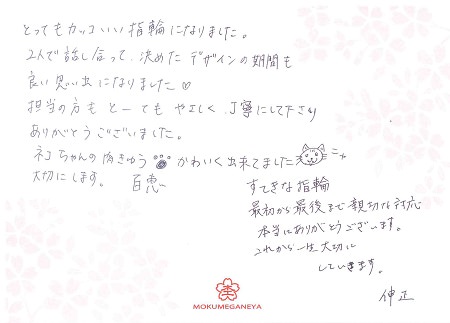 とってもカッコいい指輪になりました。
2人で話し合って、決めたデザインの期間も
良い思い出になりました♡
担当の方もとーてもやさしく、丁寧にして下さり
ありがとうございました。
ネコちゃんの肉きゅう かわいく出来てました ニャ
大切にします。 百恵
すてきな指輪
最初から最後まで親切な対応
本当にありがとうございます。
これから一生大切に
していきます。
伸正
MOKUMEGANEYA